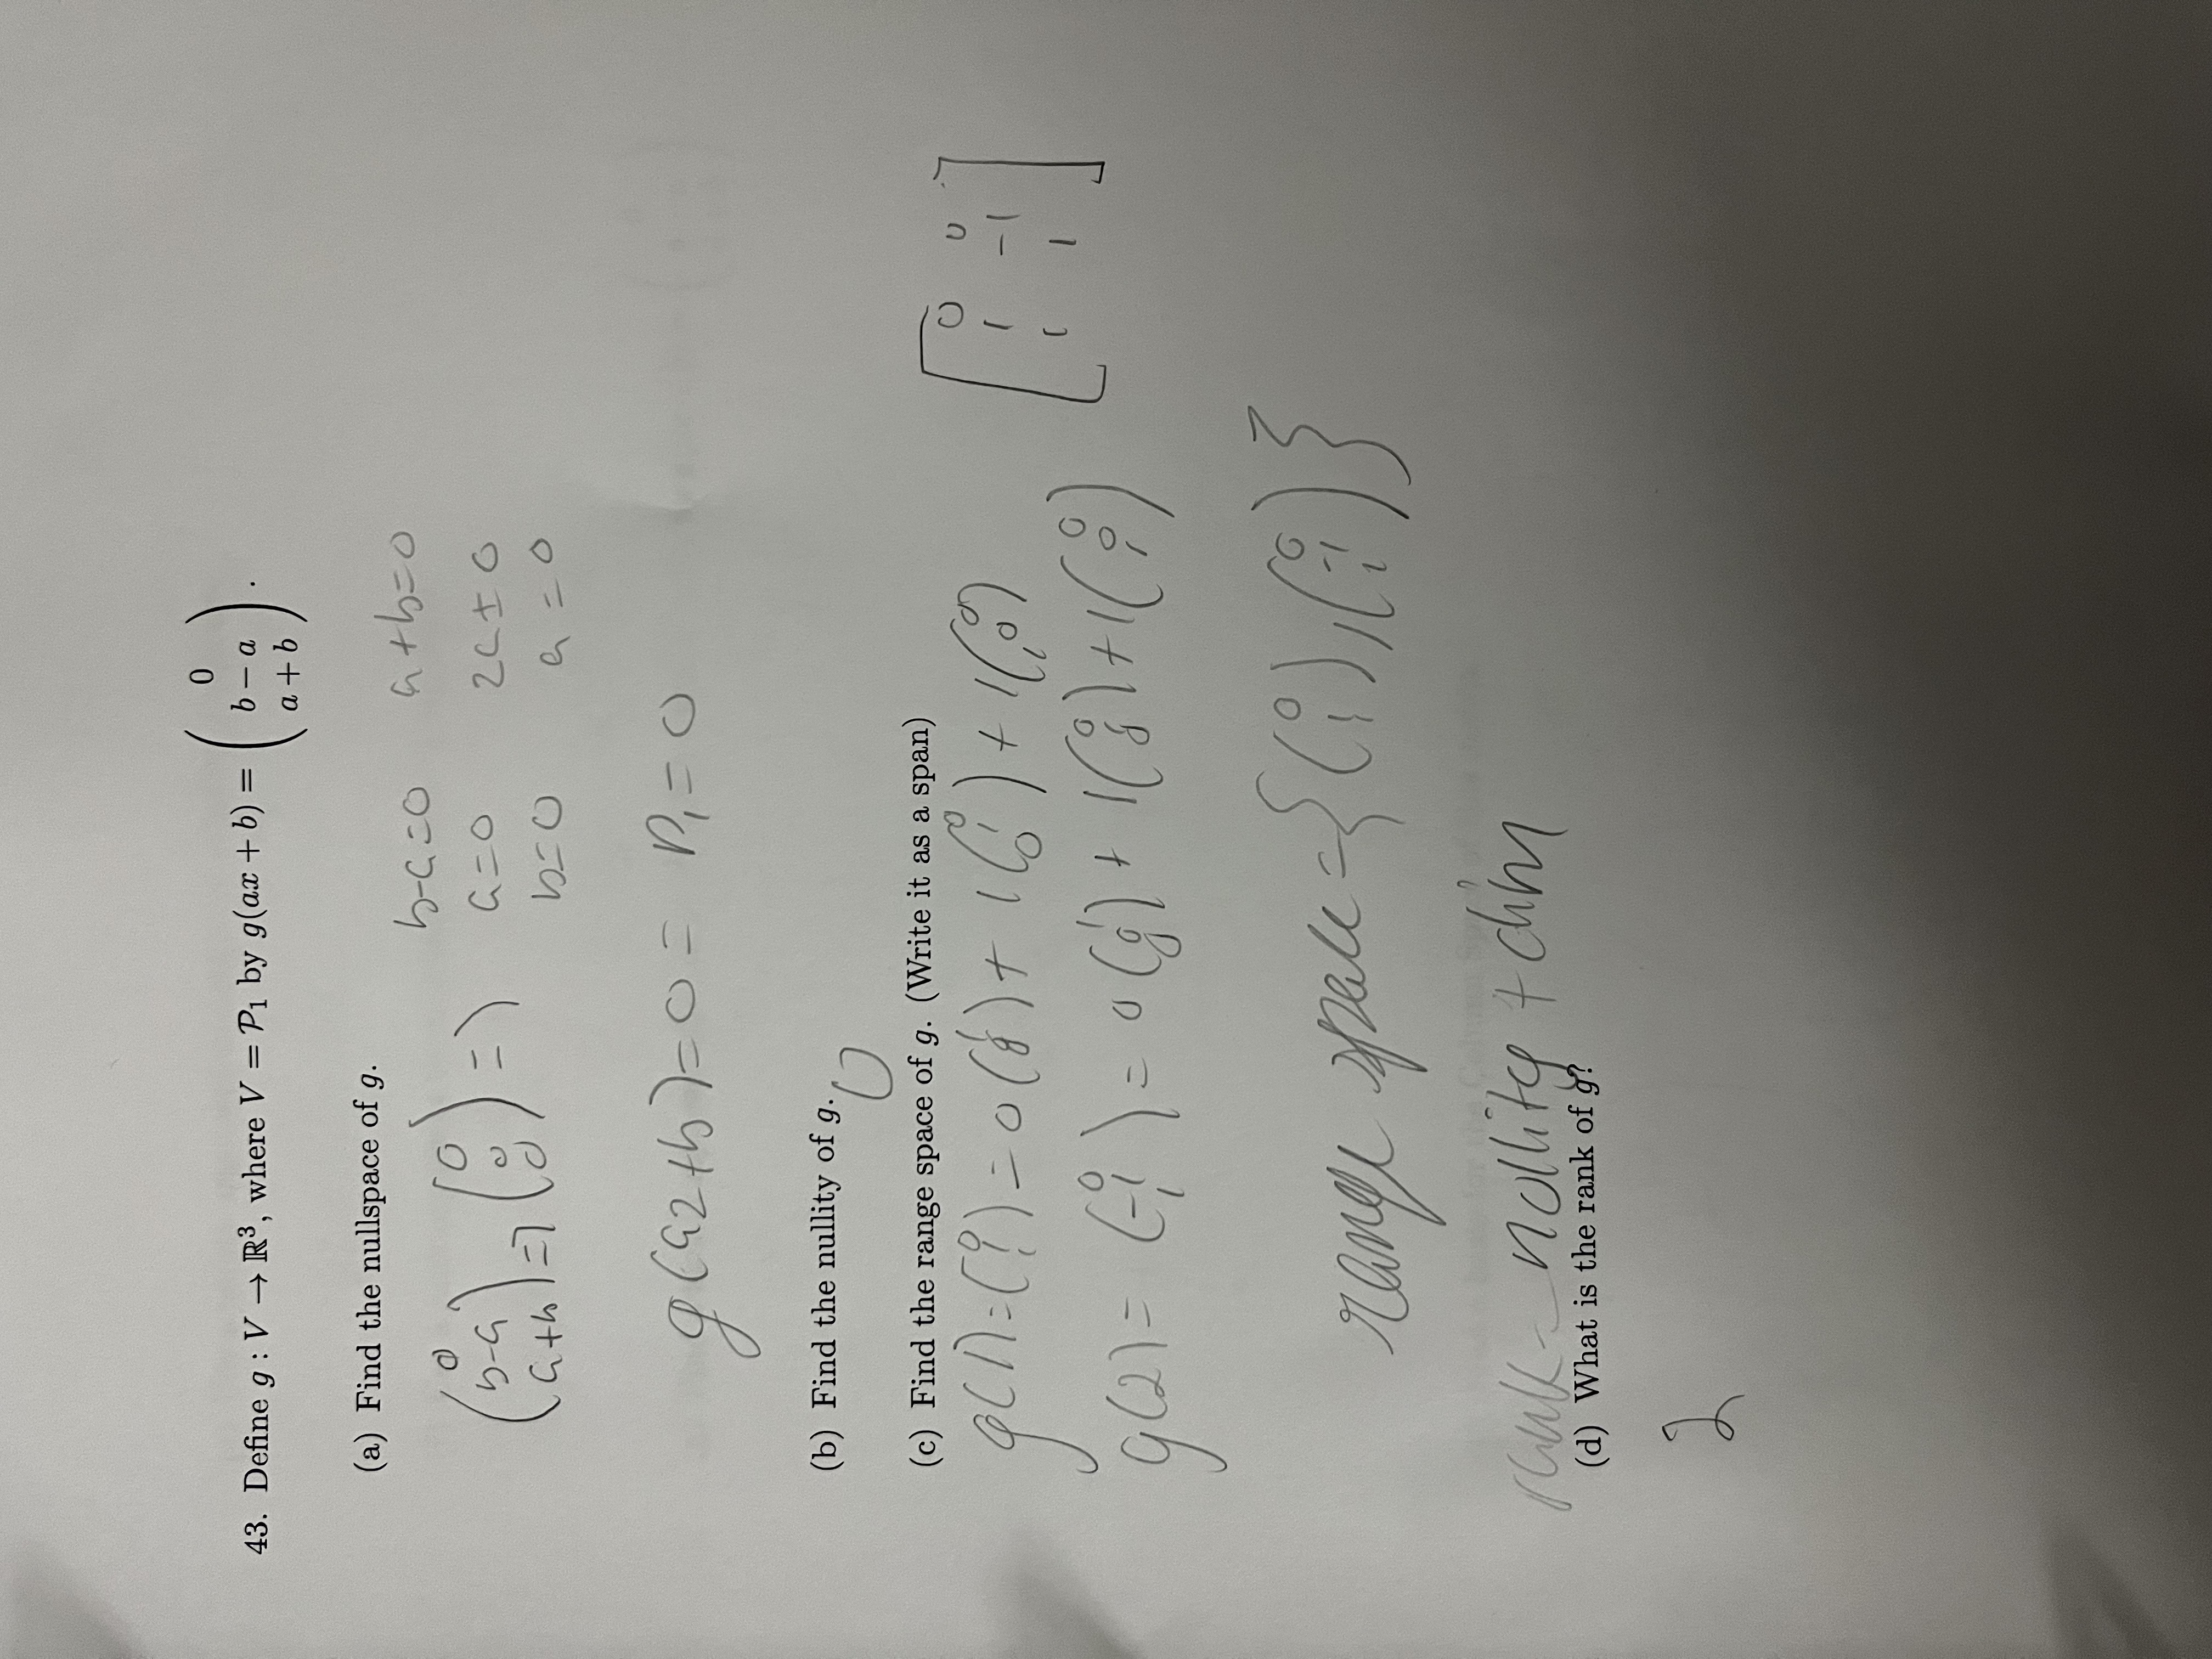 43. Define g : V → ℝ³, where V = P₁ by g(ax + b) = ( 0
b − a
a + b ) .
(a) Find the nullspace of g.
b-a=0 a+b=0
( 0
b-a
a+b ) => ( 0
0
0 ) => a=0 2a = 0
b=0 a = 0
g(ax+b)=0 = P₁ = 0
(b) Find the nullity of g.
0
(c) Find the range space of g. (Write it as a span)
g(1)=(0 1 1) = 0(1 0 0) + 1(0 1 0) + 1(0 0 1)
[ 0 0
1 -1
1 1 ]
g(2)= (0 -1 1) = 0(1 0 0) + 1(0 1 0) + 1(0 0 1)
range space = { (0 1 1), (0 -1 1) }
rank = nullity + dim
(d) What is the rank of g?
2